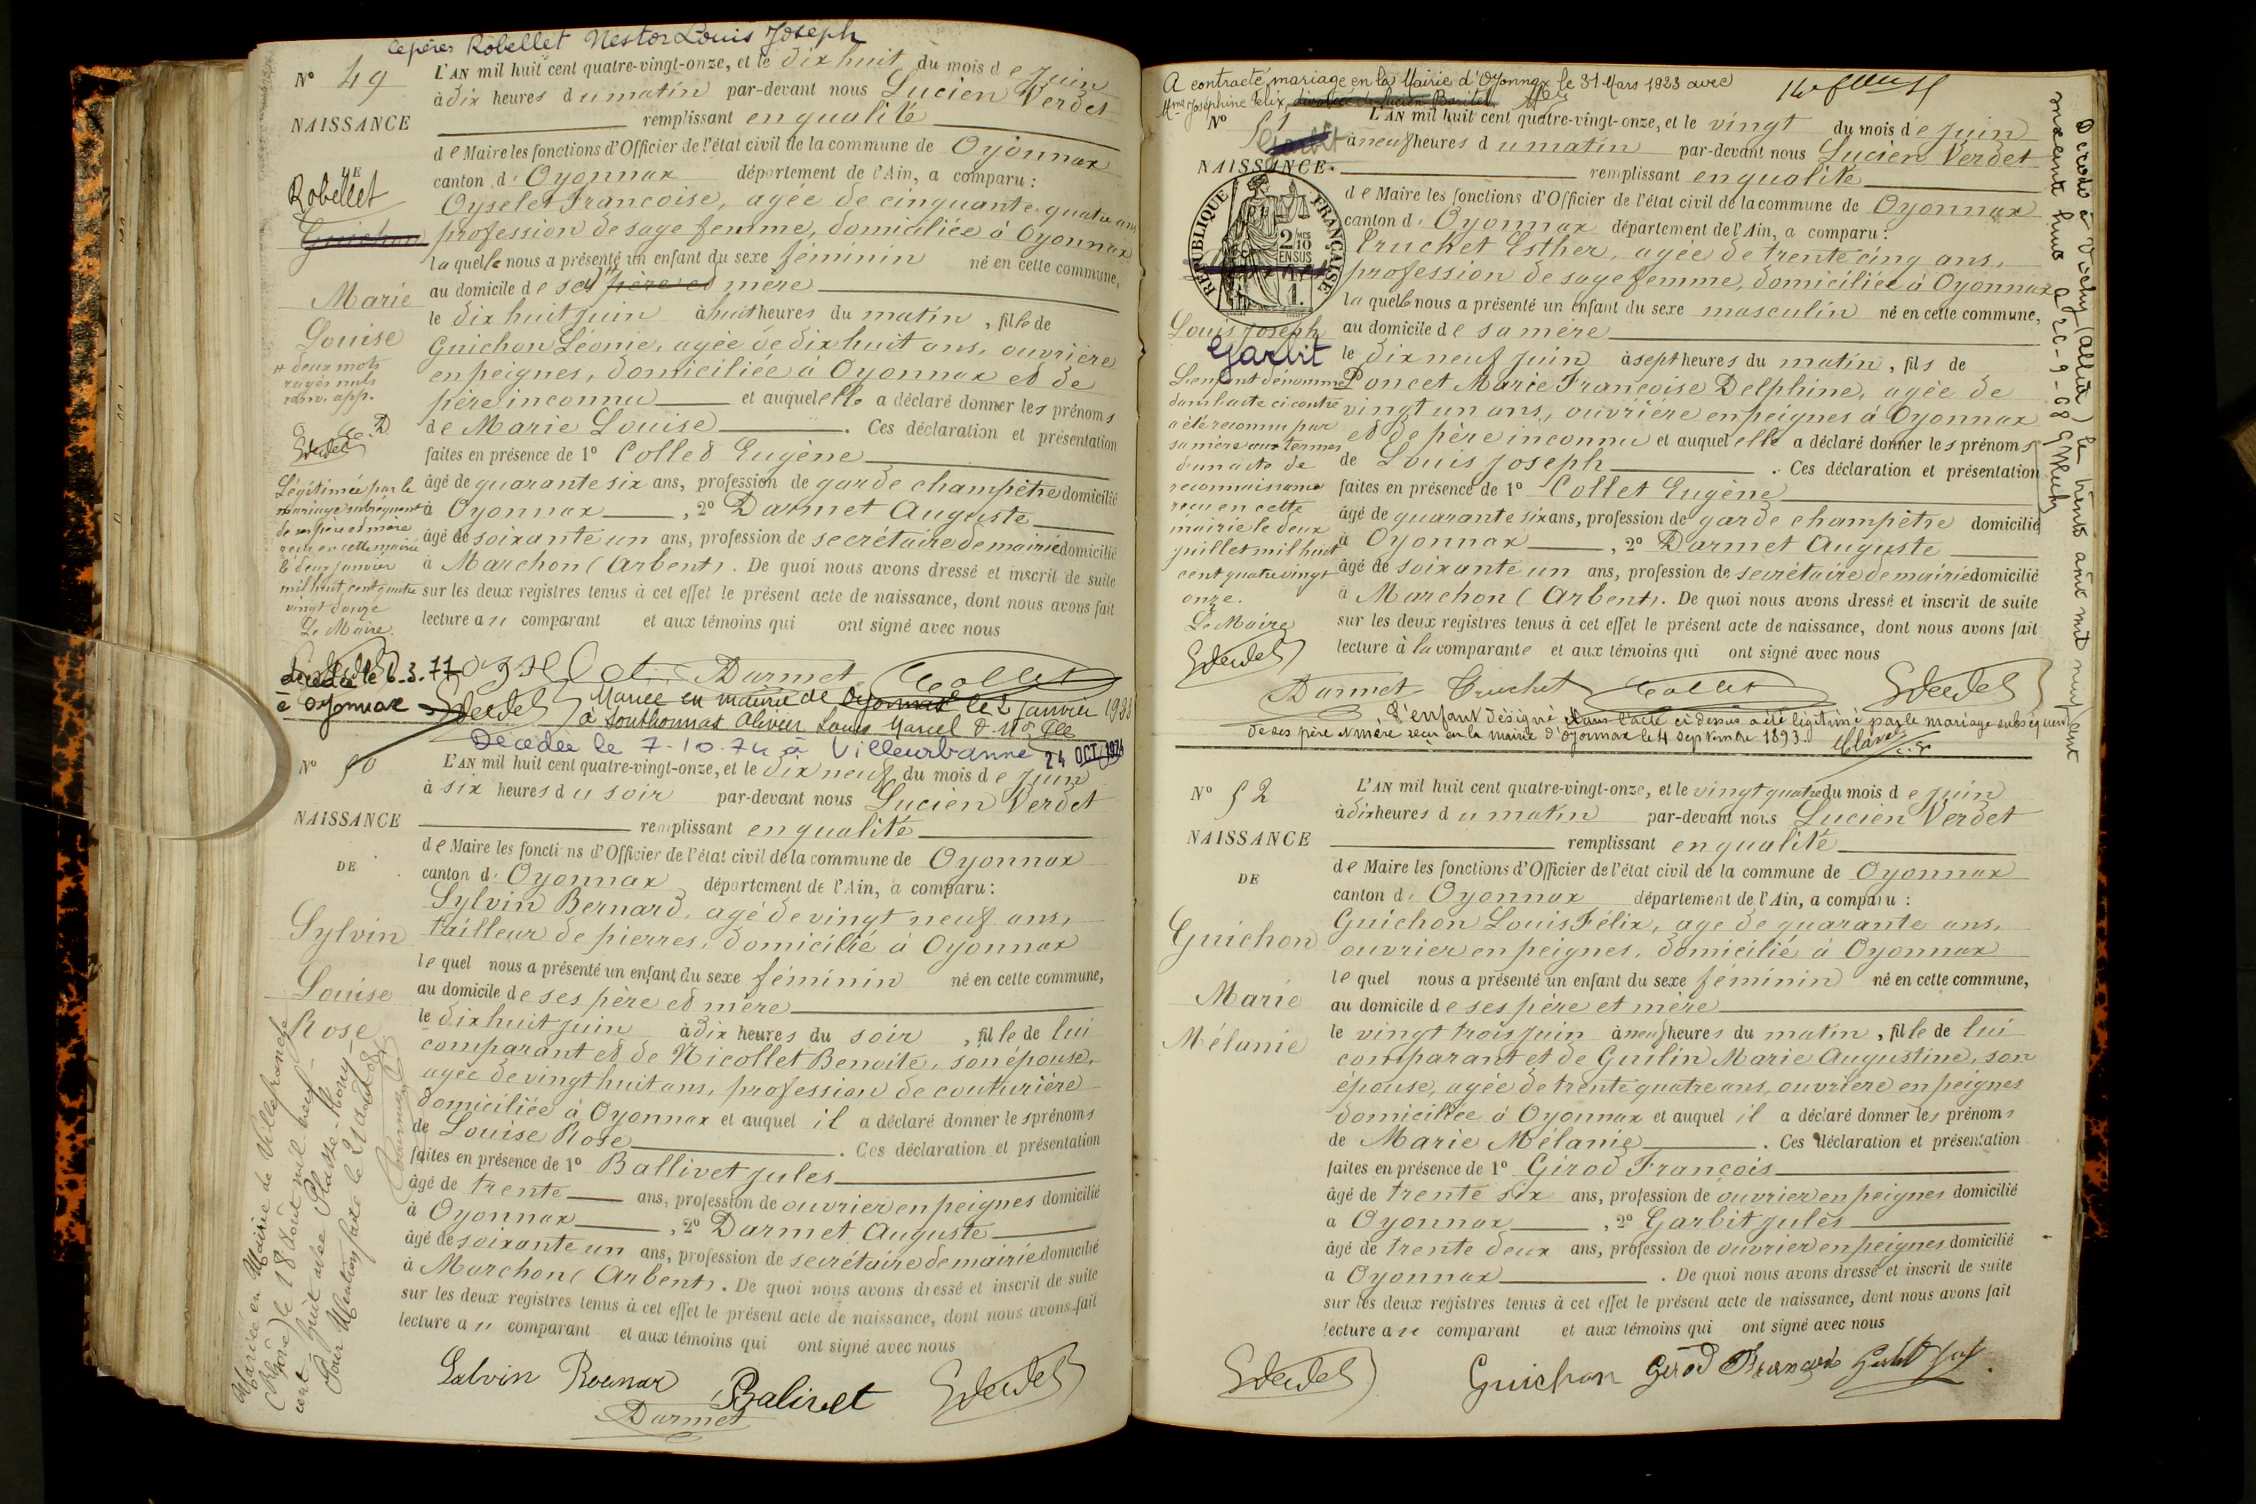 le père Robellet Nestor Louis Joseph
N° 49
NAISSANCE
DE
Robellet
Guichon
Marie
Louise
# deux mots
rayés nuls
Légitimée par le
mariage subséquent
de ses père et mère
reçu en cette mairie
le deux janvier
mil huit cent quatre
vingt douze
Le Maire
décédée le 6.3.77
à Oyonnax
L'AN mil huit cent quatre-vingt-onze, et le dix huit du mois de Juin
à dix heures du matin par-devant nous Lucien Verdet
remplissant en qualité
de Maire les fonctions d'Officier de l'état civil de la commune de Oyonnax
canton d' Oyonnax département de l'Ain, a comparu :
Oyselet Francoise, agée de cinquante quatre ans
profession de sage femme, domiciliée à Oyonnax
laquelle nous a présenté un enfant du sexe féminin né en cette commune,
au domicile de sa # père et mère
le dix huit juin à huit heures du matin, fille de
Guichon Léonie, agée de dix huit ans, ouvrière
en peignes, domiciliée à Oyonnax et de
père inconnu et auquel elle a déclaré donner les prénoms
de Marie Louise. Ces déclaration et présentation
faites en présence de 1° Collet Eugène
âgé de quarante six ans, profession de garde champêtre domicilié
à Oyonnax, 2° Darmet Auguste
âgé de soixante un ans, profession de secrétaire de mairie domicilié
à Marchon (Arbent). De quoi nous avons dressé et inscrit de suite
sur les deux registres tenus à cet effet le présent acte de naissance, dont nous avons fait
lecture au comparant et aux témoins qui ont signé avec nous
Oyselet Darmet Collet
Mariée en mairie de Oyonnax le 2 Janvier
à Southonnax Louis Marcel
Décédée le 7-10-74 à Villeurbanne 24 OCT. 1974
N° 50
NAISSANCE
DE
Sylvin
Louise
Rose
Mariée en Mairie de Villefranche
(Rhône) le 18 Août mil neuf
cent huit avec
Pour Mention faite le 21 Août 08
L'AN mil huit cent quatre-vingt-onze, et le dix neuf du mois de Juin
à six heures du soir par-devant nous Lucien Verdet
remplissant en qualité
de Maire les fonctions d'Officier de l'état civil de la commune de Oyonnax
canton d' Oyonnax département de l'Ain, a comparu :
Sylvin Bernard, agé de vingt neuf ans,
tailleur de pierres, domicilié à Oyonnax
lequel nous a présenté un enfant du sexe féminin né en cette commune,
au domicile de ses père et mère
le dix huit juin à dix heures du soir, fille de lui
comparant et de Nicollet Benoite, son épouse,
agée de vingt huit ans, profession de couturière
domiciliée à Oyonnax et auquel il a déclaré donner les prénoms
de Louise Rose. Ces déclaration et présentation
faites en présence de 1° Ballivet Jules
âgé de trente ans, profession de ouvrier en peignes domicilié
à Oyonnax, 2° Darmet Auguste
âgé de soixante un ans, profession de secrétaire de mairie domicilié
à Marchon (Arbent). De quoi nous avons dressé et inscrit de suite
sur les deux registres tenus à cet effet le présent acte de naissance, dont nous avons fait
lecture au comparant et aux témoins qui ont signé avec nous
Salvin Balivet
Darmet
A contracté mariage en la Mairie d'Oyonnax le 31 Mars 1923 avec
Mme Joséphine Felix,
N° 51
Garbit
NAISSANCE
RÉPUBLIQUE FRANÇAISE
2 MES
10
EN SUS
1.
Louis Joseph
Garbit
L'enfant dénommé
dans l'acte ci contre
a été reconnu par
sa mère aux termes
d'un acte de
reconnaissance
reçu en cette
mairie le deux
juillet mil huit
cent quatre vingt
onze.
Le Maire
L'AN mil huit cent quatre-vingt-onze, et le vingt du mois de Juin
à neuf heures du matin par-devant nous Lucien Verdet
remplissant en qualité
de Maire les fonctions d'Officier de l'état civil de la commune de Oyonnax
canton d' Oyonnax département de l'Ain, a comparu :
Truchet Esther, agée de trente cinq ans,
profession de sage femme, domiciliée à Oyonnax
laquelle nous a présenté un enfant du sexe masculin né en cette commune,
au domicile de sa mère
le dix neuf juin à sept heures du matin, fils de
Poncet Marie Françoise Delphine, agée de
vingt un ans, ouvrière en peignes à Oyonnax
et de père inconnu et auquel elle a déclaré donner les prénoms
de Louis Joseph. Ces déclaration et présentation
faites en présence de 1° Collet Eugène
âgé de quarante six ans, profession de garde champêtre domicilié
à Oyonnax, 2° Darmet Auguste
âgé de soixante un ans, profession de secrétaire de mairie domicilié
à Marchon (Arbent). De quoi nous avons dressé et inscrit de suite
sur les deux registres tenus à cet effet le présent acte de naissance, dont nous avons fait
lecture à la comparante et aux témoins qui ont signé avec nous
Darmet Truchet Collet
L'enfant désigné dans l'acte ci dessus a été légitimé par le mariage subséquent
de ses père et mère reçu en la mairie d'Oyonnax le 4 septembre 1893.
Décédé à Vichy (Allier) le trente août mil neuf cent
soixante huit
N° 52
NAISSANCE
DE
Guichon
Marie
Mélanie
L'AN mil huit cent quatre-vingt-onze, et le vingt quatre du mois de Juin
à dix heures du matin par-devant nous Lucien Verdet
remplissant en qualité
de Maire les fonctions d'Officier de l'état civil de la commune de Oyonnax
canton d' Oyonnax département de l'Ain, a comparu :
Guichon Louis Félix, age de quarante ans,
ouvrier en peignes, domicilié à Oyonnax
lequel nous a présenté un enfant du sexe féminin né en cette commune,
au domicile de ses père et mère
le vingt trois juin à neuf heures du matin, fille de lui
comparant et de Guilin Marie Augustine, son
épouse, agée de trente quatre ans, ouvrière en peignes
domiciliée à Oyonnax et auquel il a déclaré donner les prénoms
de Marie Mélanie. Ces déclaration et présentation
faites en présence de 1° Girod François
âgé de trente six ans, profession de ouvrier en peignes domicilié
a Oyonnax, 2° Garbit Jules
âgé de trente deux ans, profession de ouvrier en peignes domicilié
a Oyonnax. De quoi nous avons dressé et inscrit de suite
sur les deux registres tenus à cet effet le présent acte de naissance, dont nous avons fait
lecture au comparant et aux témoins qui ont signé avec nous
Guichon Girod François